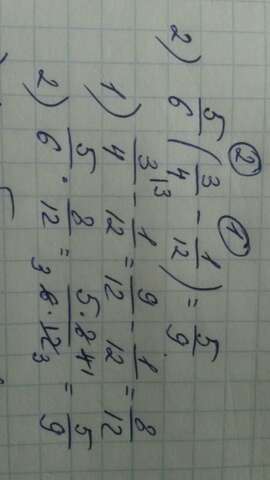 2) 5/6 (3/4 - 1/12) = 5/9
② ①
1) 3/4 |3 - 1/12 = 9/12 - 1/12 = 8/12
2) 5/6 · 8/12 = 5·8 4 1/3 6·12 3 = 5/9